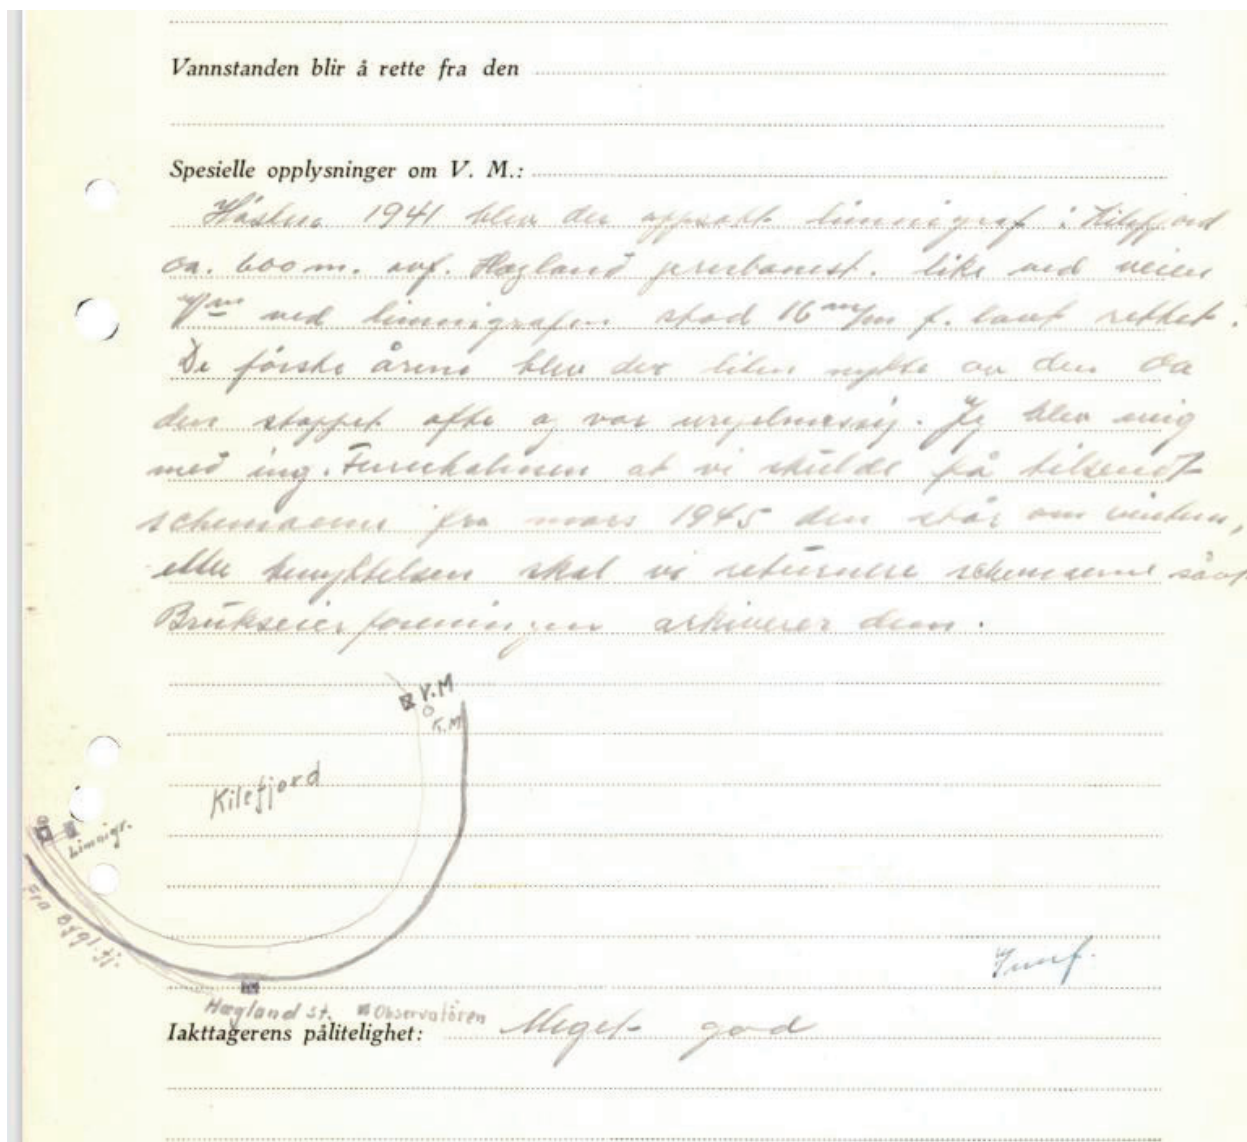 Vannstanden blir å rette fra den
Spesielle opplysninger om V. M.:
Hösten 1941 blev der oppsatt limnigraf i Kilefjord
ca. 600 m. ovf. Hægland jernbanest. like ved veien
Vm ved limnigrafen stod 16 m/m f. lavt rettet.
De förske årene blev det liten nytte av den da
den stoppet ofte og var uregelmessig. Jeg blev enig
med ing. Furuholmen at vi skulde få tilsendt
schemaene fra mars 1945 den står om vinteren,
etter benyttelsen skal vi returnere schemaene såvt
Brukseierforeningen arkiverer dem.
V.M
K.M
Kilefjord
Limnigr.
Fra Bygl.fj.
Hægland st.
Observatören
Iakttagerens pålitelighet: Meget god